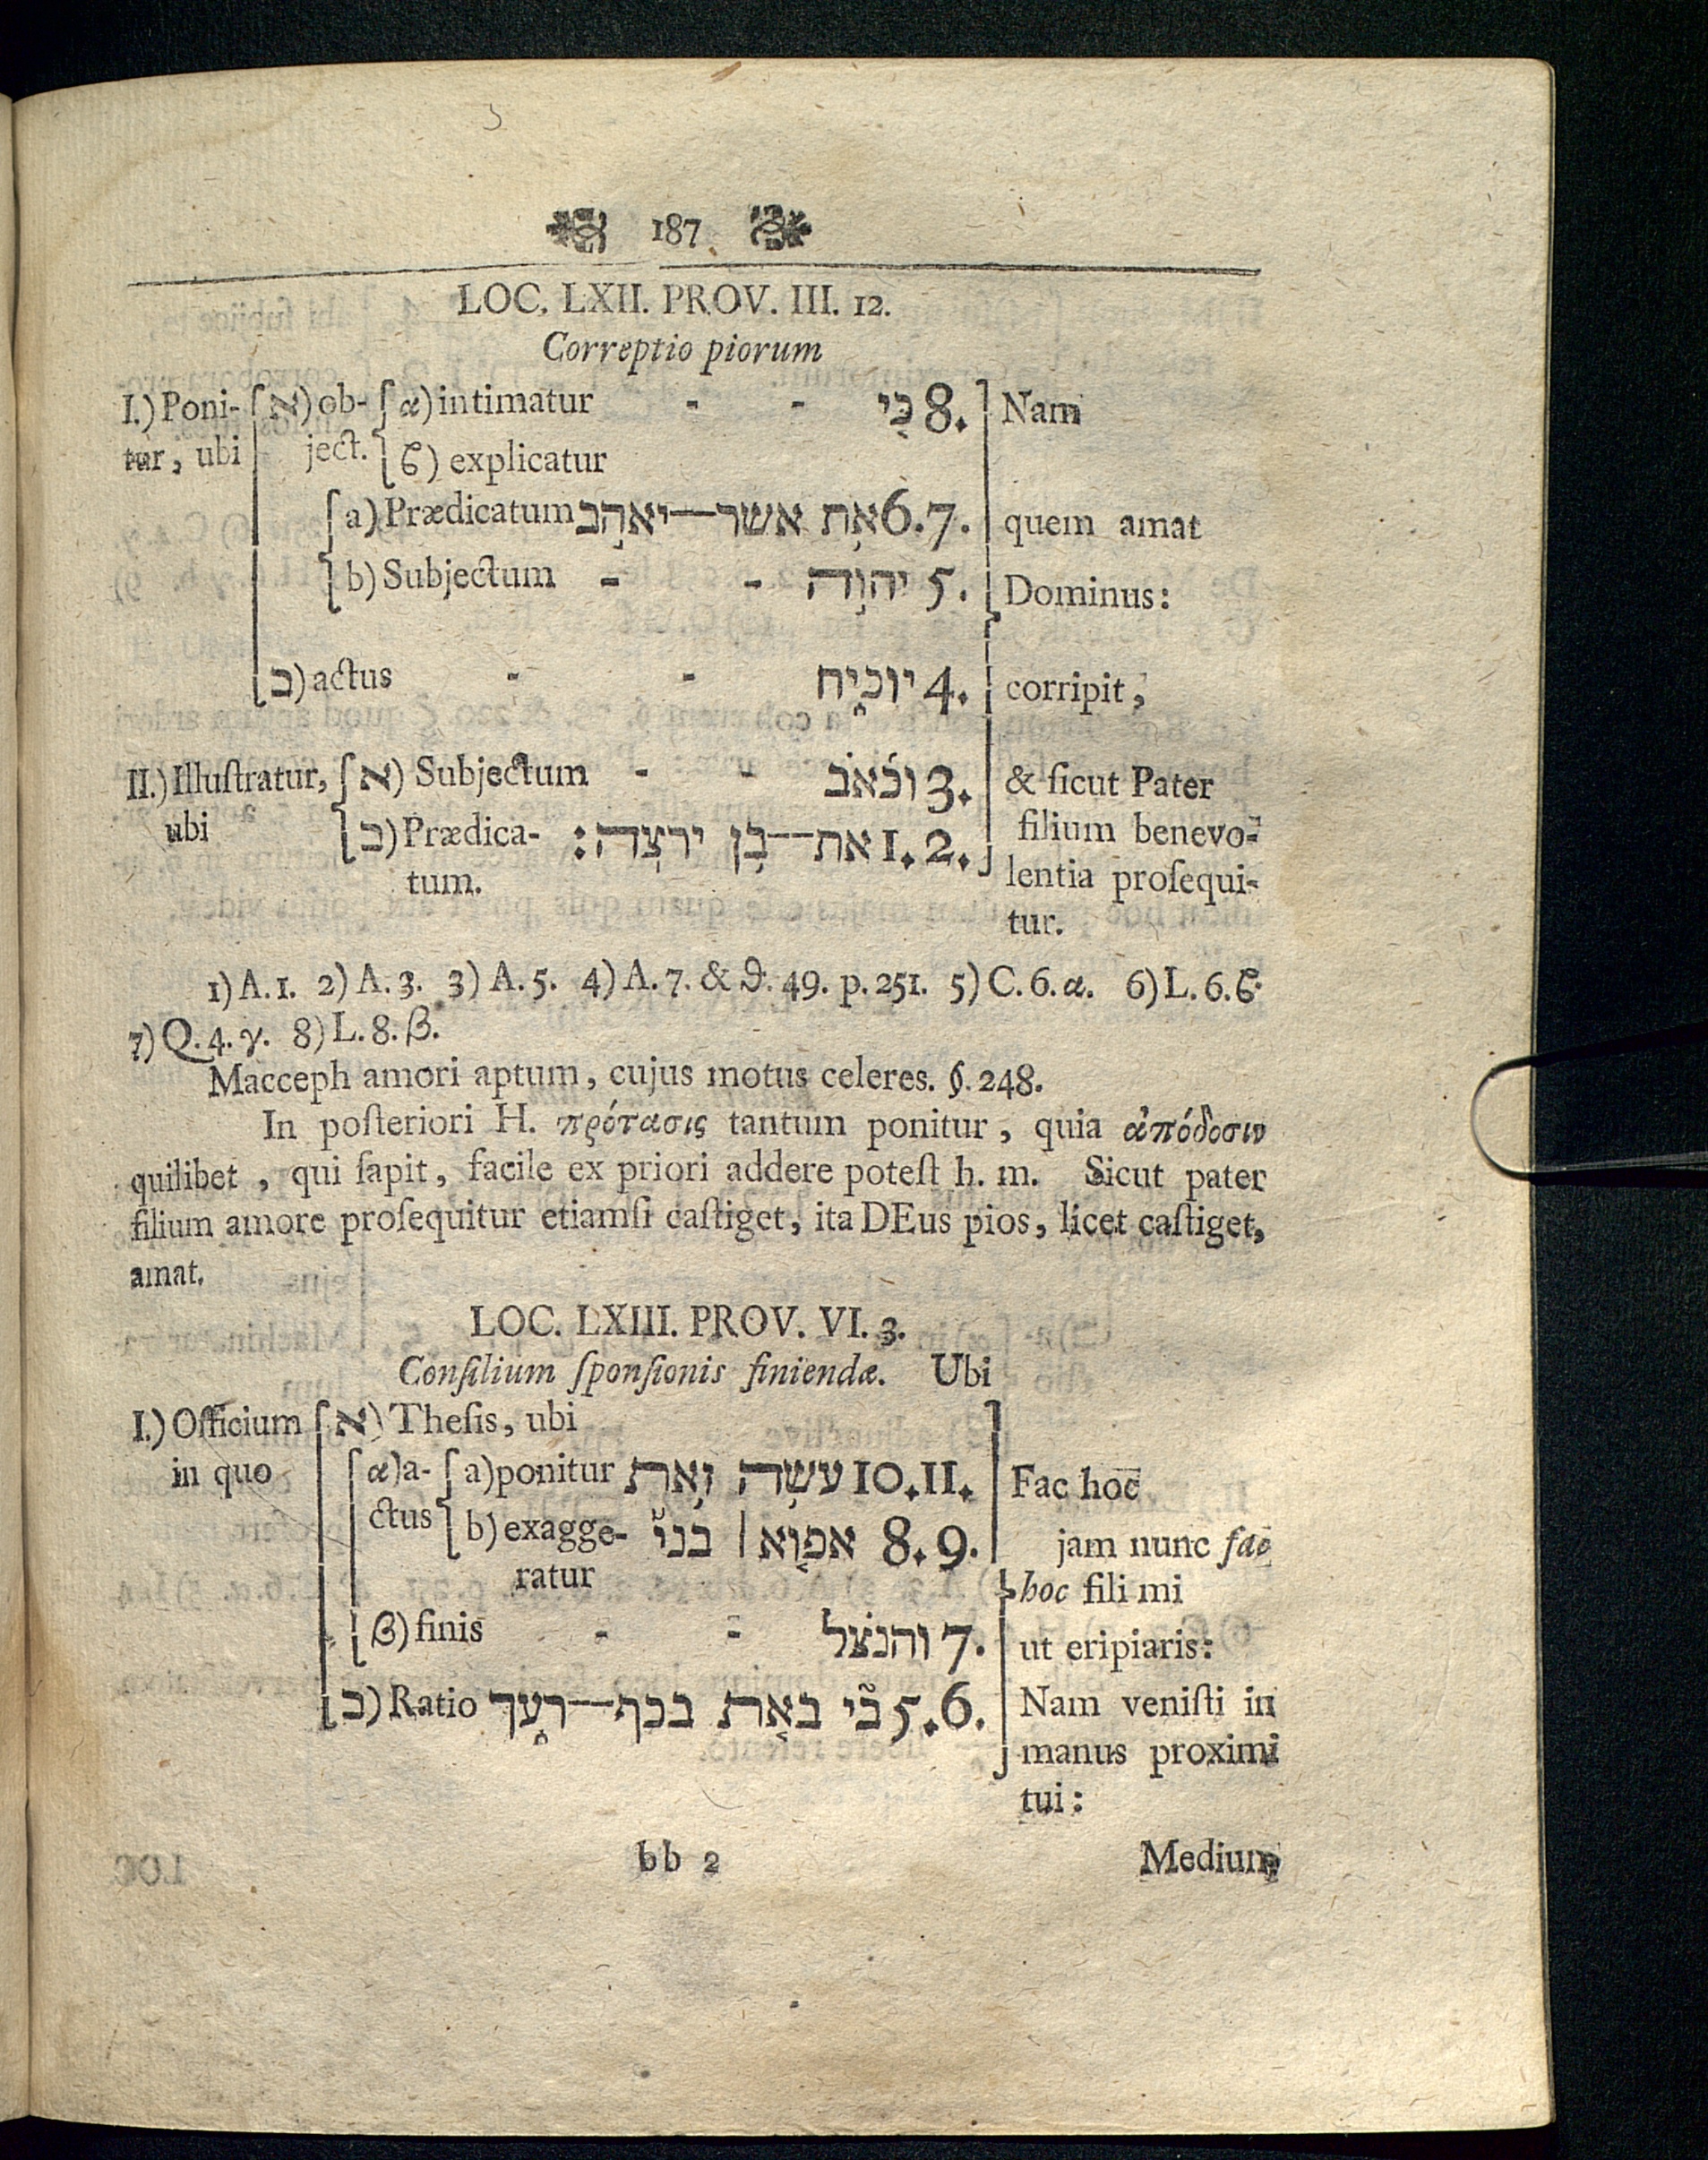 187
LOC. LXII. PROV. III. 12.
Correptio piorum
I.) Poni- א) ob- α) intimatur - - כי 8. Nam
tur, ubi ject. ϐ) explicatur
a) Prædicatum את אשר—יאהב 6.7. quem amat
b) Subjectum - - יהוה 5. Dominus:
ב) actus - - יוכיח 4. corripit,
II.) Illuſtratur, א) Subjectum - - וכאב 3. & ſicut Pater
ubi ב) Prædica- את—בן ירצה: 1. 2. filium benevo-
tum. lentia proſequi-
tur.
1) A. 1. 2) A. 3. 3) A. 5. 4) A. 7. & ϑ. 49. p. 251. 5) C. 6. α. 6) L. 6. ϐ.
7) Q. 4. γ. 8) L. 8. β.
Macceph amori aptum, cujus motus celeres. §. 248.
In poſteriori H. πρότασις tantum ponitur, quia ἀπόδοσιν
quilibet, qui ſapit, facile ex priori addere poteſt h. m. Sicut pater
filium amore proſequitur etiamſi caſtiget, ita DEus pios, licet caſtiget,
amat.
LOC. LXIII. PROV. VI. 3.
Conſilium ſponſionis finiendæ. Ubi
I.) Officium א) Theſis, ubi
in quo α) a- a) ponitur עשה זאת 10. 11. Fac hoc
ctus b) exagge- אפוא | בני 8. 9. jam nunc fac
ratur hoc fili mi
β) finis - - והנצל 7. ut eripiaris:
ב) Ratio כי באת בכף—רעך 5. 6. Nam veniſti in
manus proximi
tui:
bb 2 Medium